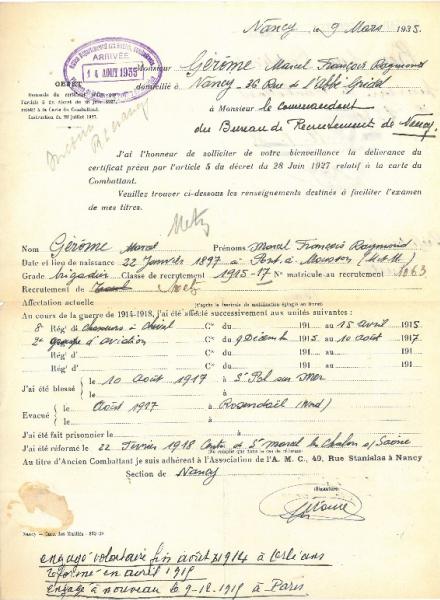 Nancy le 9 Mars 1935.
ARRIVÉE
14 AOUT 1935
Monsieur Gérôme Marcel François Raymond
OBJET
domicilié à Nancy - 36 Rue de l'Abbé Gridel
Demande du certificat
l'article 5 du décret du 28 juin 1927,
relatif à la Carte du Combattant.
Instruction du 28 juillet 1927.
à Monsieur le commandant
du Bureau de Recrutement de Nancy
J'ai l'honneur de solliciter de votre bienveillance la délivrance du
certificat prévu par l'article 5 du décret de 28 Juin 1927 relatif à la carte du
Combattant.
Veuillez trouver ci-dessous les renseignements destinés à faciliter l'examen
de mes titres.
Metz
Nom Gérôme Marcel Prénoms Marcel François Raymond
Date et lieu de naissance 22 Janvier 1897 à Pont-à-Mousson (M-et-M)
Grade brigadier Classe de recrutement 1915-17 N° matricule au recrutement 1063
Recrutement de Metz
Affectation actuelle
Au cours de la guerre de 1914-1918, j'ai été affecté successivement aux unités suivantes :
8 Rég' Chasseurs à cheval Cie du 191 au 15 avril 1915
2e groupe d'aviation Cie du 9 Décemb 1915 au 10 août 1917
Rég' d' Cie du 191 au 191
Rég' d' Cie du 191 au 191
J'ai été blessé le 10 Août 1917 à St Pol sur Mer
le à
Evacué le Août 1917 à Rosendaël (Nord)
le à
J'ai été fait prisonnier le à
J'ai été réformé le 22 Février 1918 Centre de St Marcel les Chalon s/ Saône
Au titre d'Ancien Combattant je suis adhérent à l'Association de l'A. M. C., 49, Rue Stanislas à Nancy
Section de Nancy
(Signature)
engagé volontaire fin août 1914 à Orléans
réformé en avril 1915
engagé à nouveau le 9-12-1915 à Paris